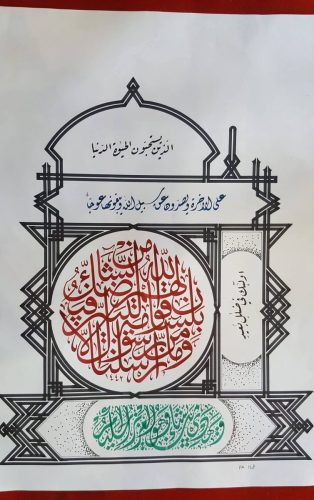 الذين يستحبون الحيوة الدنيا
على الآخرة ويصدون عن سبيل الله ويبغونها عوجا
اولئك في ضلال بعيد
وما أرسلنا من رسول إلا بلسان قومه ليبين لهم فيضل الله من يشاء
١٤٤٢
ويهدي من يشاء وهو العزيز الحكيم